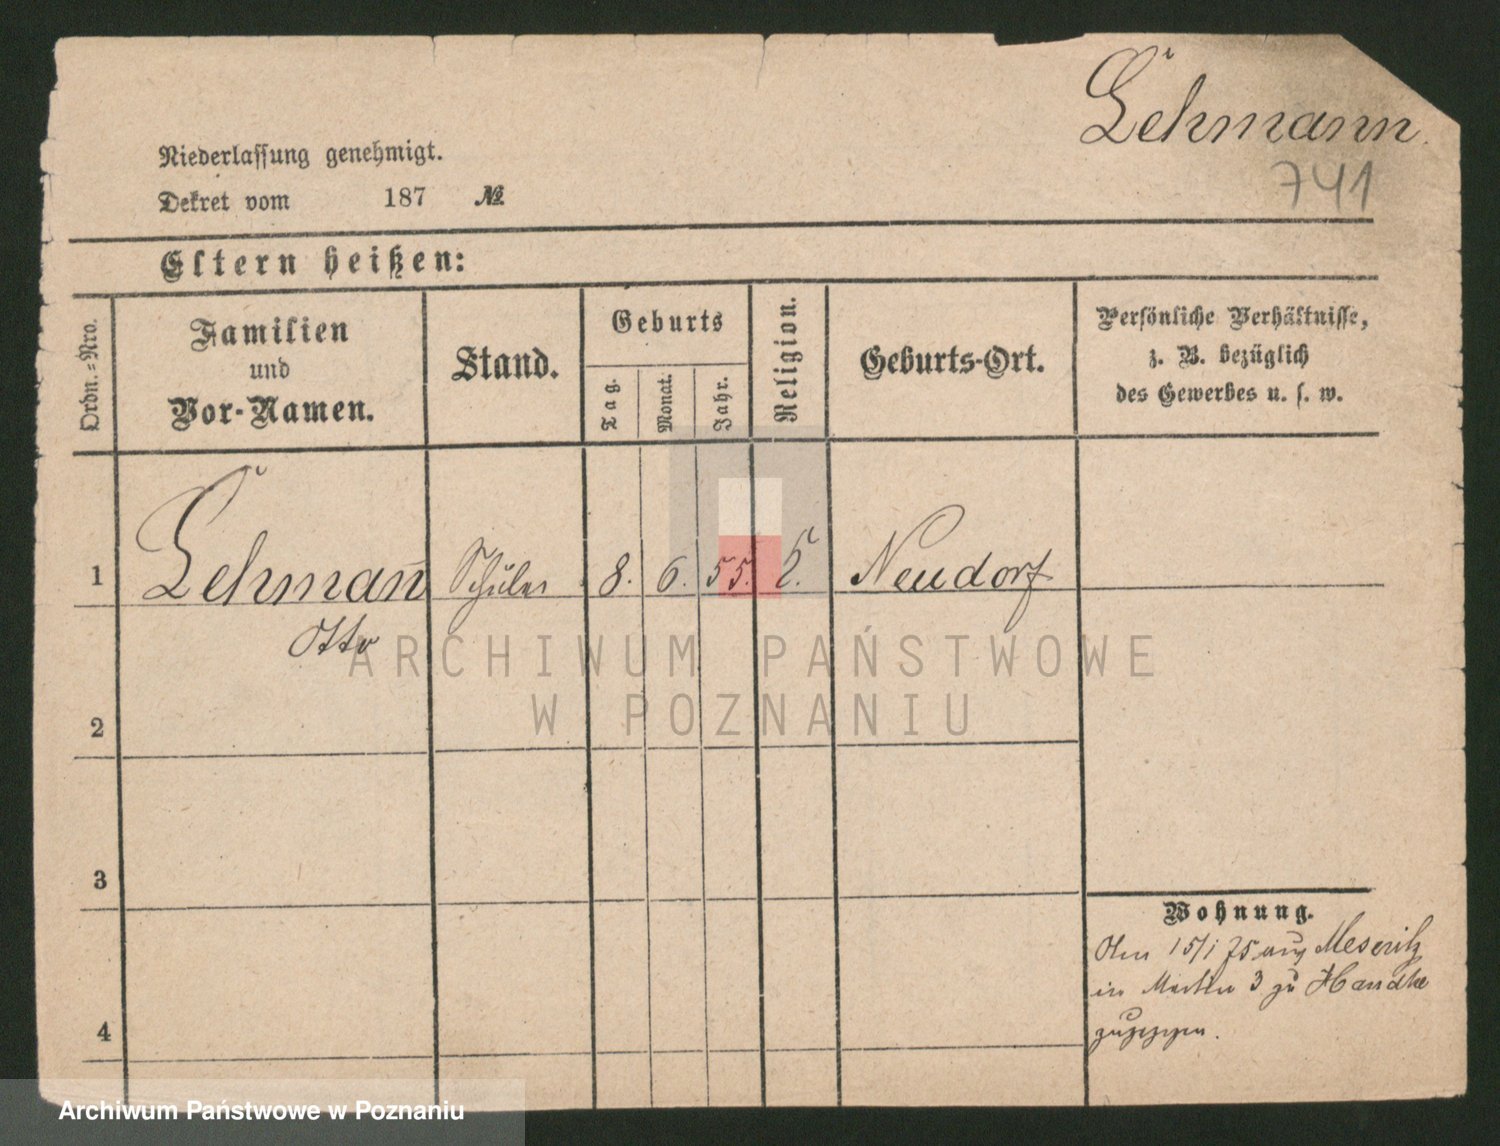 Lehmann.
741
Niederlassung genehmigt.
Dekret vom 187 №
Eltern heißen:
Ordn.=Nro.
Familien
und
Vor-Namen.
Stand.
Geburts
Tag.
Monat.
Jahr.
Religion.
Geburts-Ort.
Persönliche Verhältnisse,
z. B. bezüglich
des Gewerbes u. s. w.
1 Lehman̄ Schüler 8. 6. 55. Neudorf
Otto
2
3
4
Wohnung.
15/1 75 aus Meseritz
in Martin 3 zu Handke
zugezogen.
ARCHIWUM PAŃSTWOWE
W POZNANIU
Archiwum Państwowe w Poznaniu